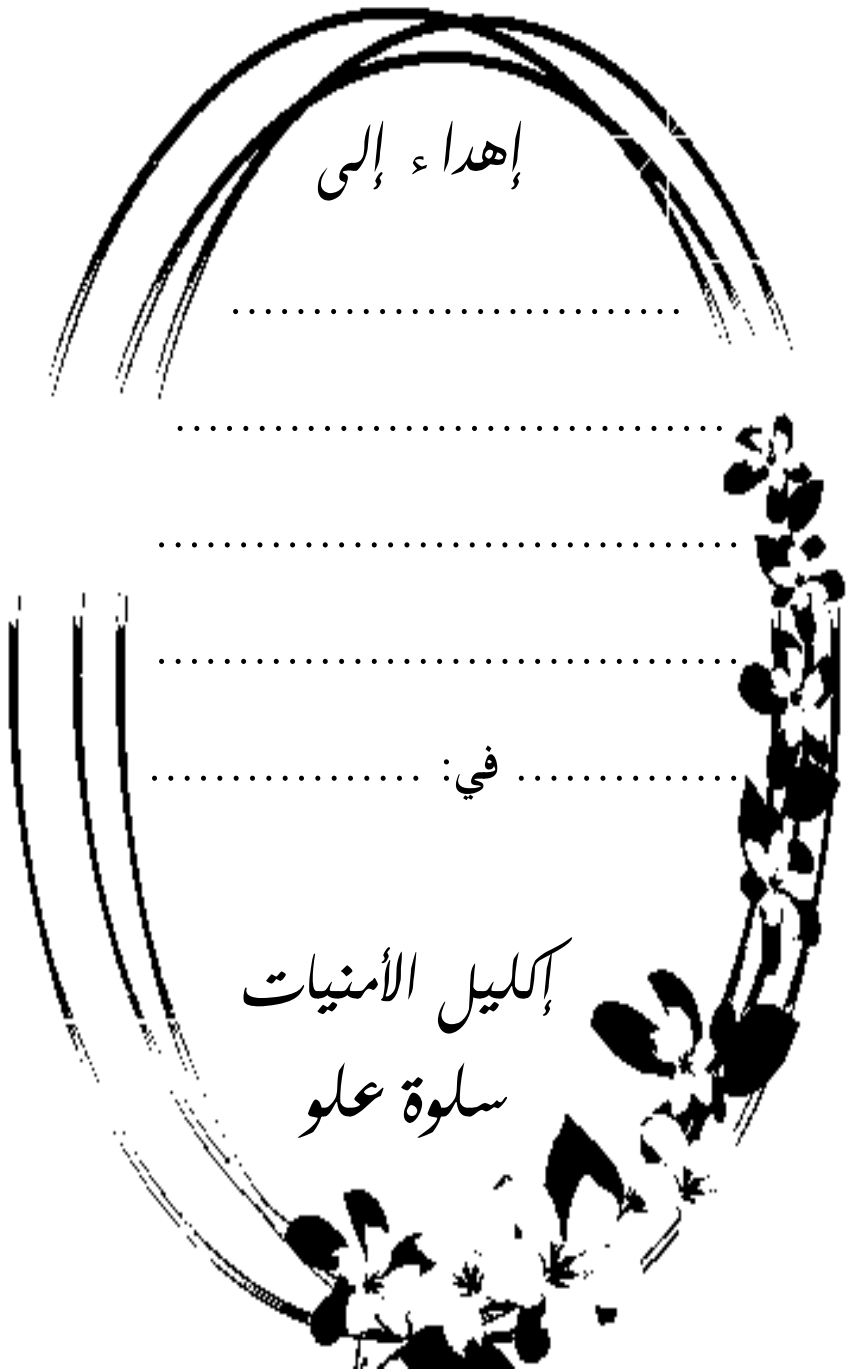 إهداء إلى
............................
..................................
....................................
....................................
.............. في: .................
إكليل الأمنيات
سلوة علو